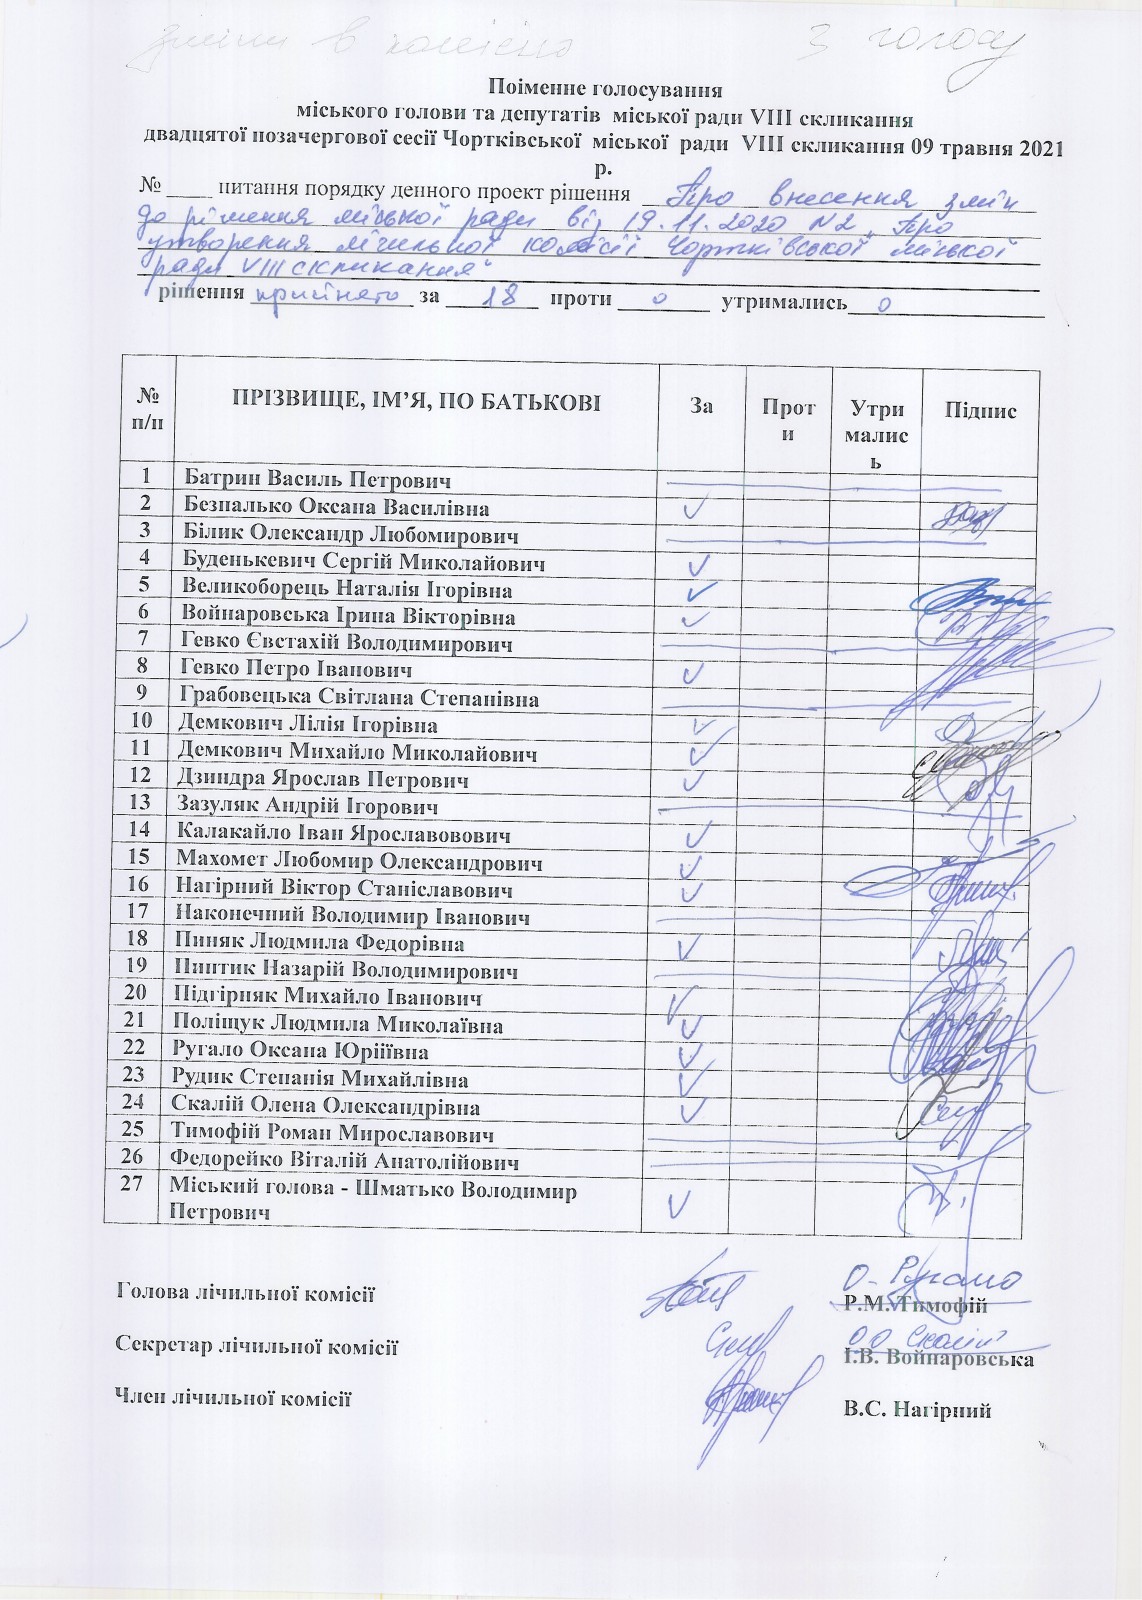 зміни в комісію З голосу
Поіменне голосування
міського голови та депутатів міської ради VIII скликання
двадцятої позачергової сесії Чортківської міської ради VIII скликання 09 травня 2021
р.
№ ____ питання порядку денного проект рішення Про внесення змін
до рішення міської ради від 19.11.2020 №2 „Про
утворення лічильної комісії Чортківської міської
ради VIII скликання“
рішення прийнято за 18 проти 0 утримались 0
№ п/п ПРІЗВИЩЕ, ІМ’Я, ПО БАТЬКОВІ За Проти Утрималис ь Підпис
1 Батрин Василь Петрович
2 Безпалько Оксана Василівна
3 Білик Олександр Любомирович
4 Буденькевич Сергій Миколайович
5 Великоборець Наталія Ігорівна
6 Войнаровська Ірина Вікторівна
7 Гевко Євстахій Володимирович
8 Гевко Петро Іванович
9 Грабовецька Світлана Степанівна
10 Демкович Лілія Ігорівна
11 Демкович Михайло Миколайович
12 Дзиндра Ярослав Петрович
13 Зазуляк Андрій Ігорович
14 Калакайло Іван Ярославовович
15 Махомет Любомир Олександрович
16 Нагірний Віктор Станіславович
17 Наконечний Володимир Іванович
18 Пиняк Людмила Федорівна
19 Пиптик Назарій Володимирович
20 Підгірняк Михайло Іванович
21 Поліщук Людмила Миколаївна
22 Ругало Оксана Юріїївна
23 Рудик Степанія Михайлівна
24 Скалій Олена Олександрівна
25 Тимофій Роман Мирославович
26 Федорейко Віталій Анатолійович
27 Міський голова - Шматько Володимир
Петрович
О. Ругало
Голова лічильної комісії Р.М. Тимофій
О.О. Скалій
Секретар лічильної комісії І.В. Войнаровська
Член лічильної комісії В.С. Нагірний